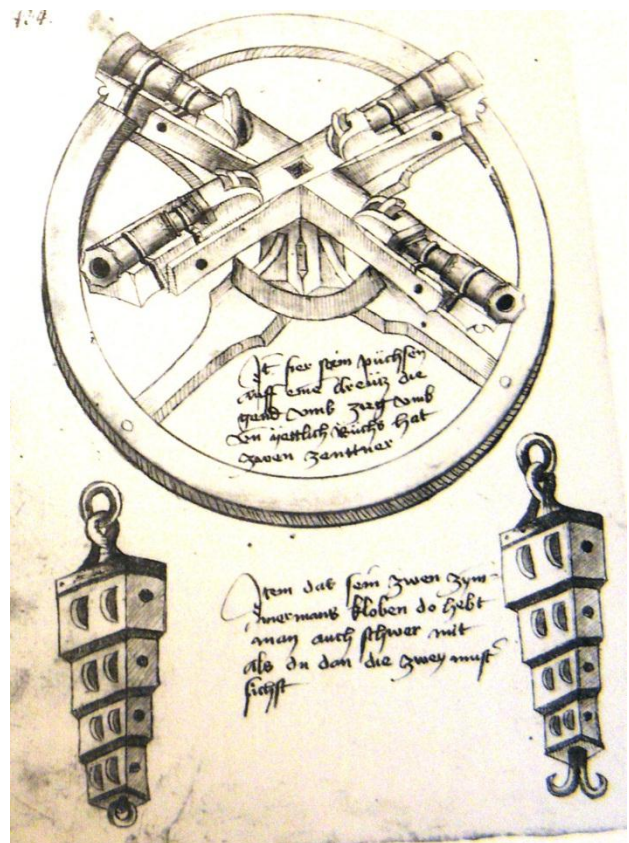 434.
It fier stein püchsen
auff eine Kreüz die
gend vmb zirg vmb
vn yettlich Büchs hat
zwen zenttner
Item das sein zwen zym=
mermans kloben do hebt
man auch schwer mit
als du dan die zwey must
sichst